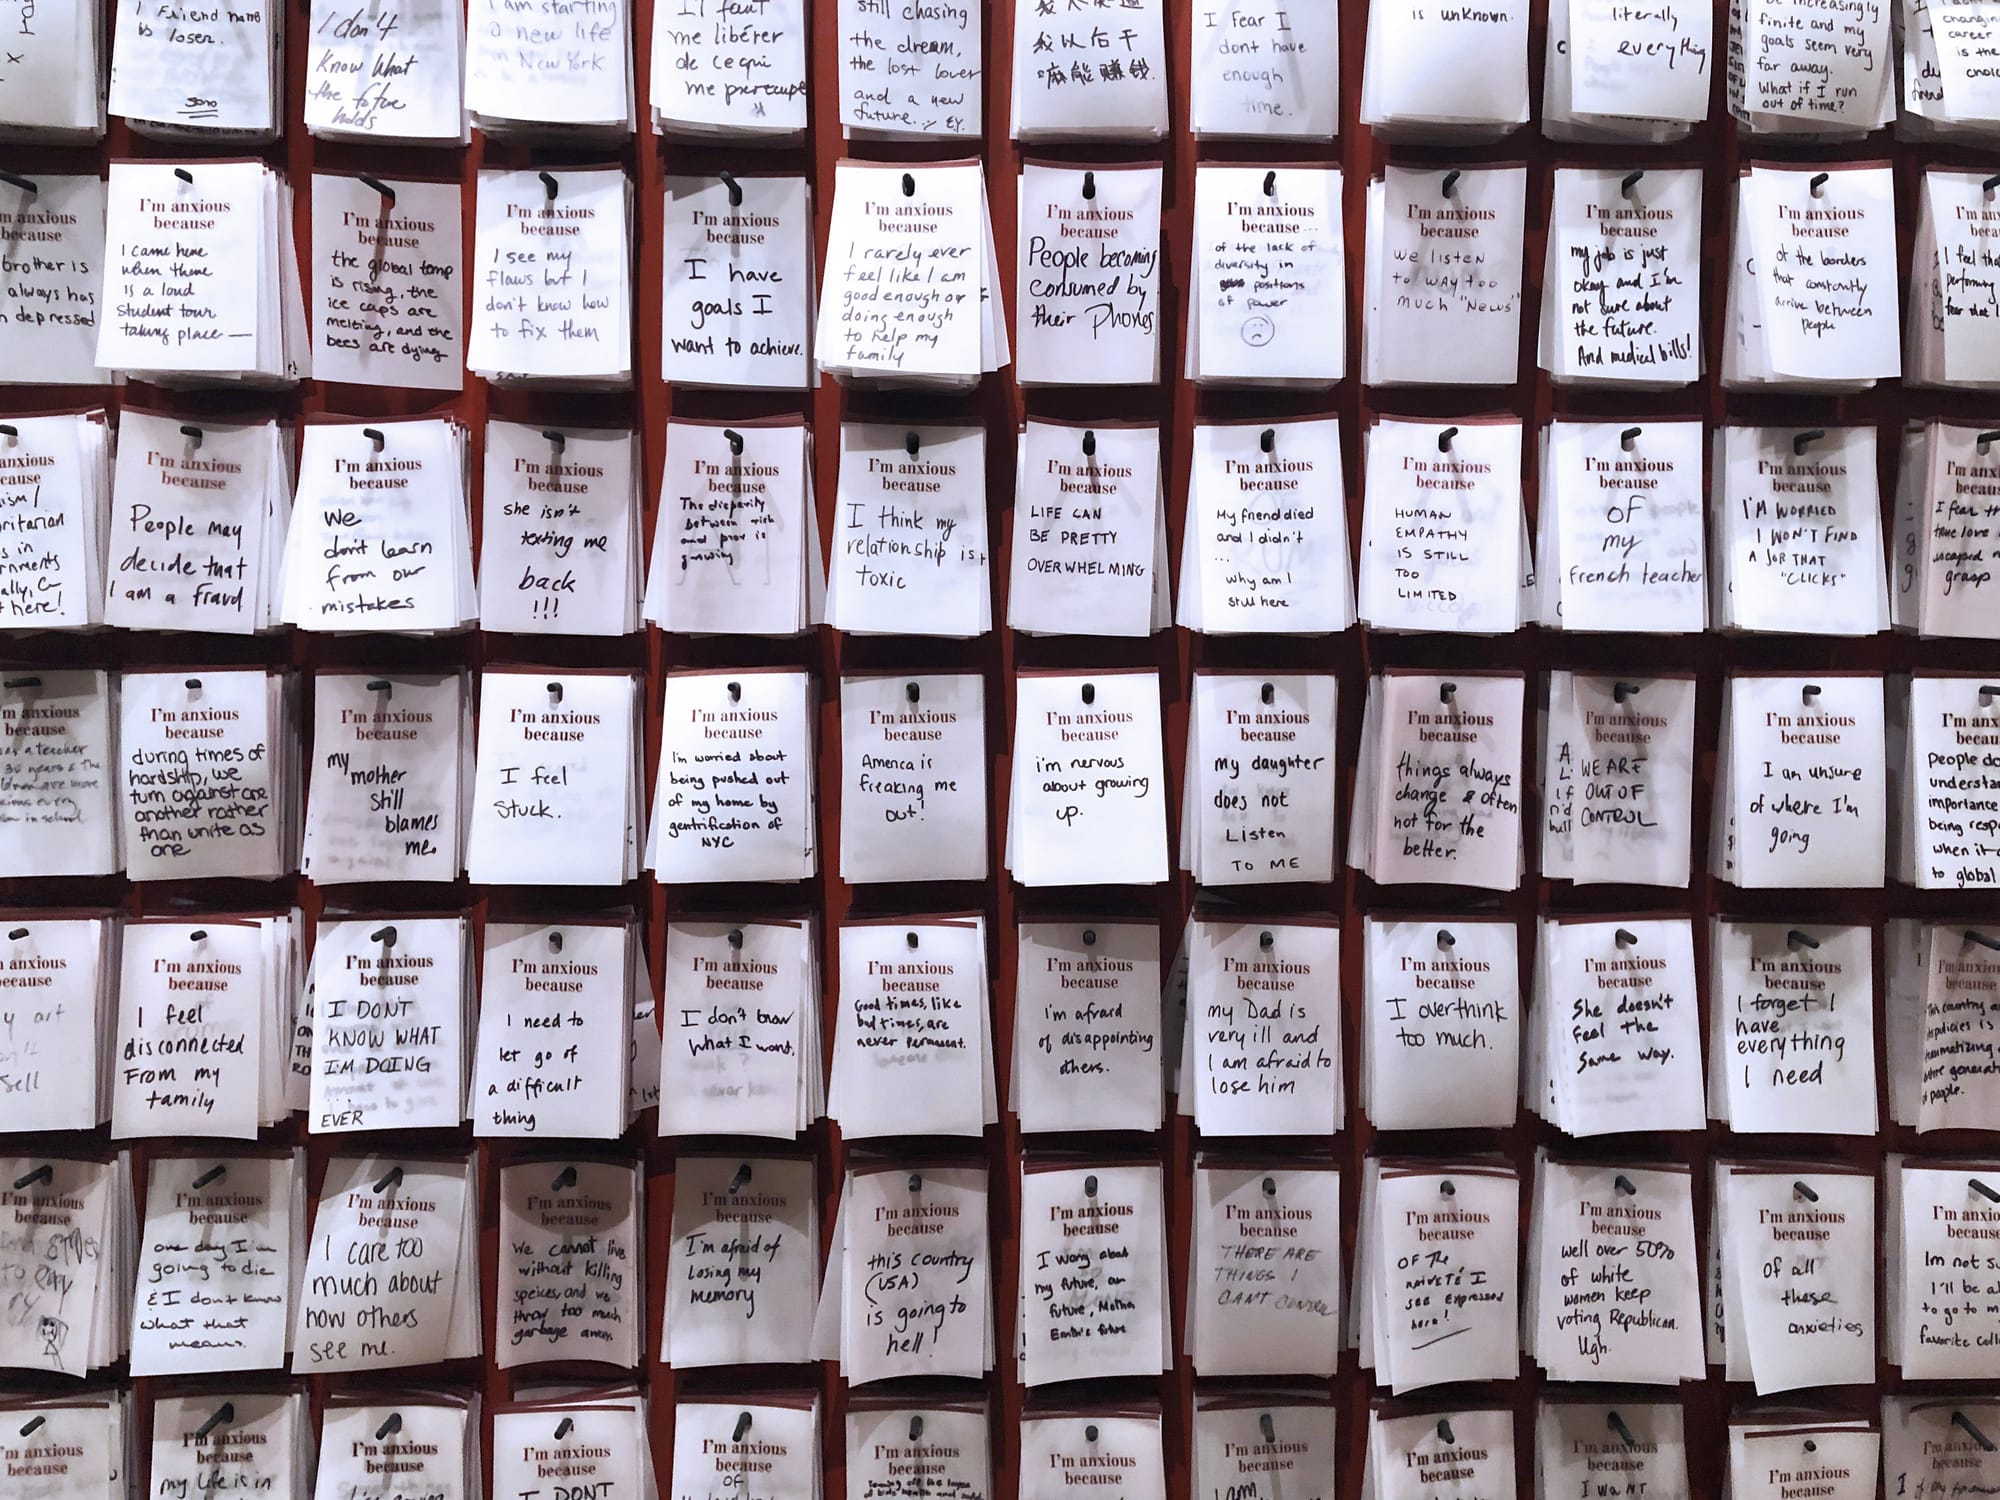 1 Friend name
is loser.
I don't
know what
the future
holds
I am starting
a new life
in New York
Il faut
me libérer
de ce qui
me
still chasing
the dream,
the lost lover
and a new
future.
我以后干
嘛能赚钱
I fear I
dont have
enough
time.
is unknown.
literally
everything
be increasingly
finite and my
goals seem very
far away.
What if I run
out of time?
career
is the
'm anxious
because
brother is
always has
depressed
I'm anxious
because
I came here
when there
is a loud
student tour
taking place —
I'm anxious
because
the global temp
is rising, the
ice caps are
melting, and the
bees are dying
I'm anxious
because
I see my
flaws but I
don't know how
to fix them
I'm anxious
because
I have
goals I
want to achieve.
I'm anxious
because
I rarely ever
feel like I am
good enough or
doing enough
to help my
family
I'm anxious
because
People becoming
consumed by
their Phones
I'm anxious
because...
of the lack of
diversity in
positions
of power
I'm anxious
because
we listen
to way too
much "News"
I'm anxious
because
my job is just
okay and I'm
not sure about
the future.
And medical bills!
I'm anxious
because
of the borders
that constantly
arrive between
people
I'm an
beca
I feel tha
performing
fear that I
anxious
cause
ism/
oritarian
s in
rnments
here!
I'm anxious
because
People may
decide that
I am a fraud
I'm anxious
because
We
don't learn
from our
mistakes
I'm anxious
because
she isn't
texting me
back
!!!
I'm anxious
because
The disparity
between rich
and poor is
growing
I'm anxious
because
I think my
relationship is
toxic
I'm anxious
because
LIFE CAN
BE PRETTY
OVERWHELMING
I'm anxious
because
My friend died
and I didn't
...
why am I
still here
I'm anxious
because
HUMAN
EMPATHY
IS STILL
TOO
LIMITED
I'm anxious
because
of
my
french teacher
I'm anxious
because
I'M WORRIED
I WON'T FIND
A JOB THAT
"CLICKS"
I'm anx
becaus
I fear th
true love
escaped m
grasp
'm anxious
because
was a teacher
I'm anxious
because
during times of
hardship, we
turn against one
another rather
than unite as
one
I'm anxious
because
my
mother
still
blames
me.
I'm anxious
because
I feel
stuck.
I'm anxious
because
I'm worried about
being pushed out
of my home by
gentrification of
NYC
I'm anxious
because
America is
freaking me
out!
I'm anxious
because
i'm nervous
about growing
up.
I'm anxious
because
my daughter
does not
Listen
TO ME
I'm anxious
because
things always
change & often
not for the
better.
I'm anxious
because
WE ARE
OUT OF
CONTROL
I'm anxious
because
I am unsure
of where I'm
going
I'm anx
becau
People do
understa
importance
being resp
when it
to global
anxious
because
y art
sell
I'm anxious
because
I feel
disconnected
From my
family
I'm anxious
because
I DON'T
KNOW WHAT
I'M DOING
...
EVER
I'm anxious
because
I need to
let go of
a difficult
thing
I'm anxious
because
I don't know
what I want.
I'm anxious
because
Good times, like
bad times, are
never permanent.
I'm anxious
because
i'm afraid
of disappointing
others.
I'm anxious
because
my Dad is
very ill and
I am afraid to
lose him
I'm anxious
because
I overthink
too much.
I'm anxious
because
She doesn't
feel the
same way.
I'm anxious
because
I forget I
have
everything
I need
I'm anxious
because
This country
of people.
I'm anxious
because
I'm anxious
because
one day I'm
going to die
& I don't know
what that
means.
I'm anxious
because
I care too
much about
how others
see me.
I'm anxious
because
We cannot live
without killing
speices, and we
throw too much
garbage
I'm anxious
because
I'm afraid of
losing my
memory
I'm anxious
because
this country
(USA)
is going to
hell!
I'm anxious
because
I worry about
my future, our
future, Mother
Earth's future
I'm anxious
because
THERE ARE
THINGS I
CAN'T CONTROL
I'm anxious
because
OF THE
NAIVETÉ I
SEE EXPRESSED
here!
I'm anxious
because
well over 50%
of white
women keep
voting Republican.
Ugh.
I'm anxious
because
of all
these
anxieties
I'm anxio
becaus
Im not su
I'll be a
to go to m
favorite colle
'm anxious
because
I'm anxious
because
my life is in
I'm anxious
because
I'm anxious
because
I DON'T
I'm anxious
because
OF
I'm anxious
because
I'm anxious
because
I'm anxious
because
I am
I'm anxious
because
I'm anxious
because
I WANT
I'm anxious
because
I'm anxious
because